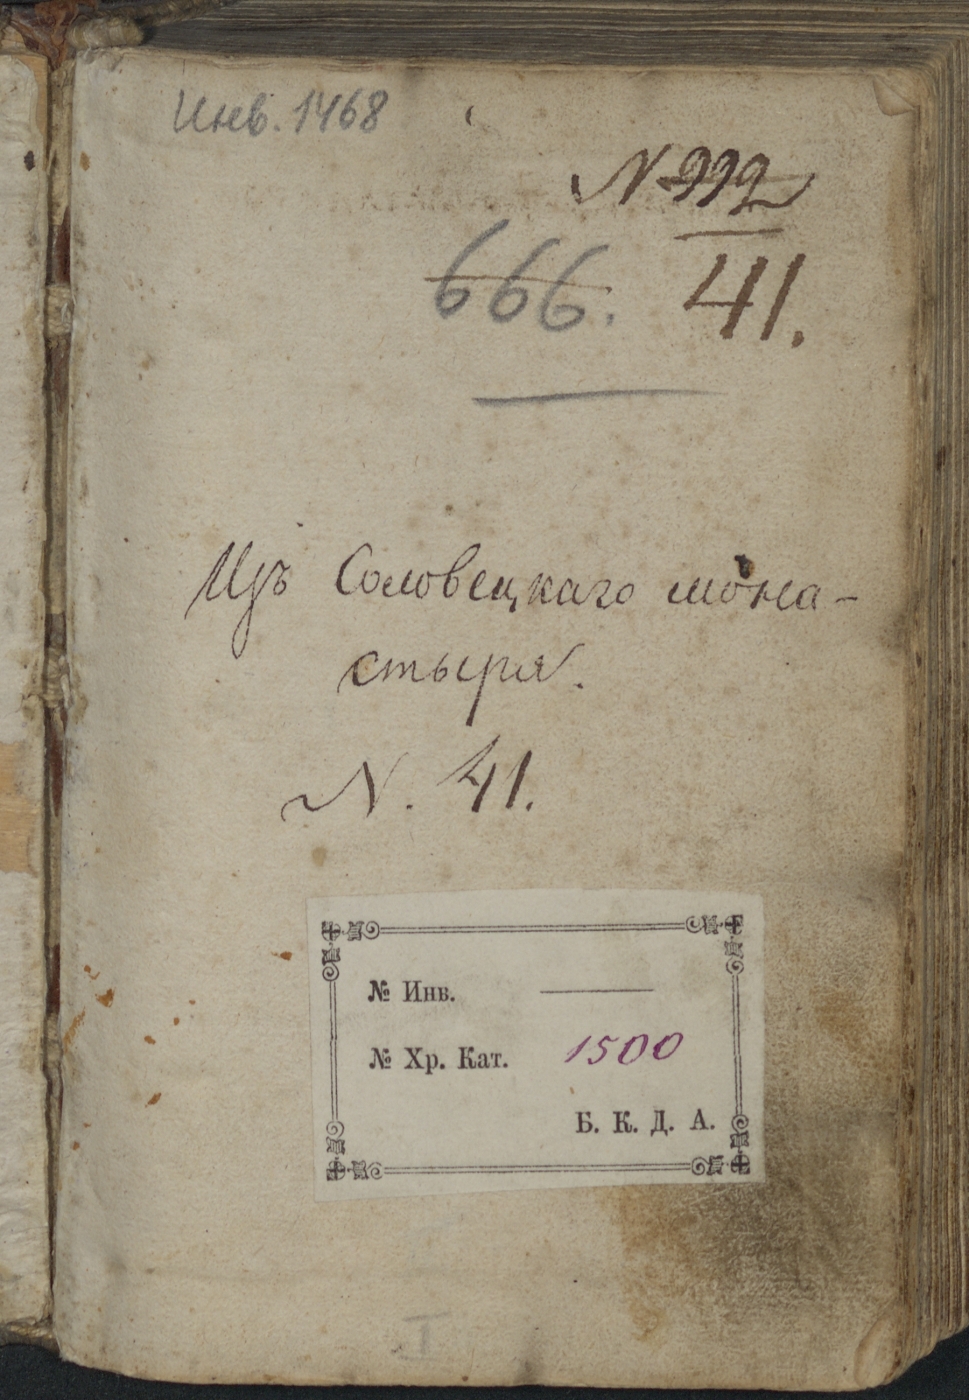 Инв. 1468
N 992
666. 41.
Изъ Соловецкаго мона-
стыря.
N. 41.
№ Инв. —
№ Хр. Кат. 1500
Б. К. Д. А.
I